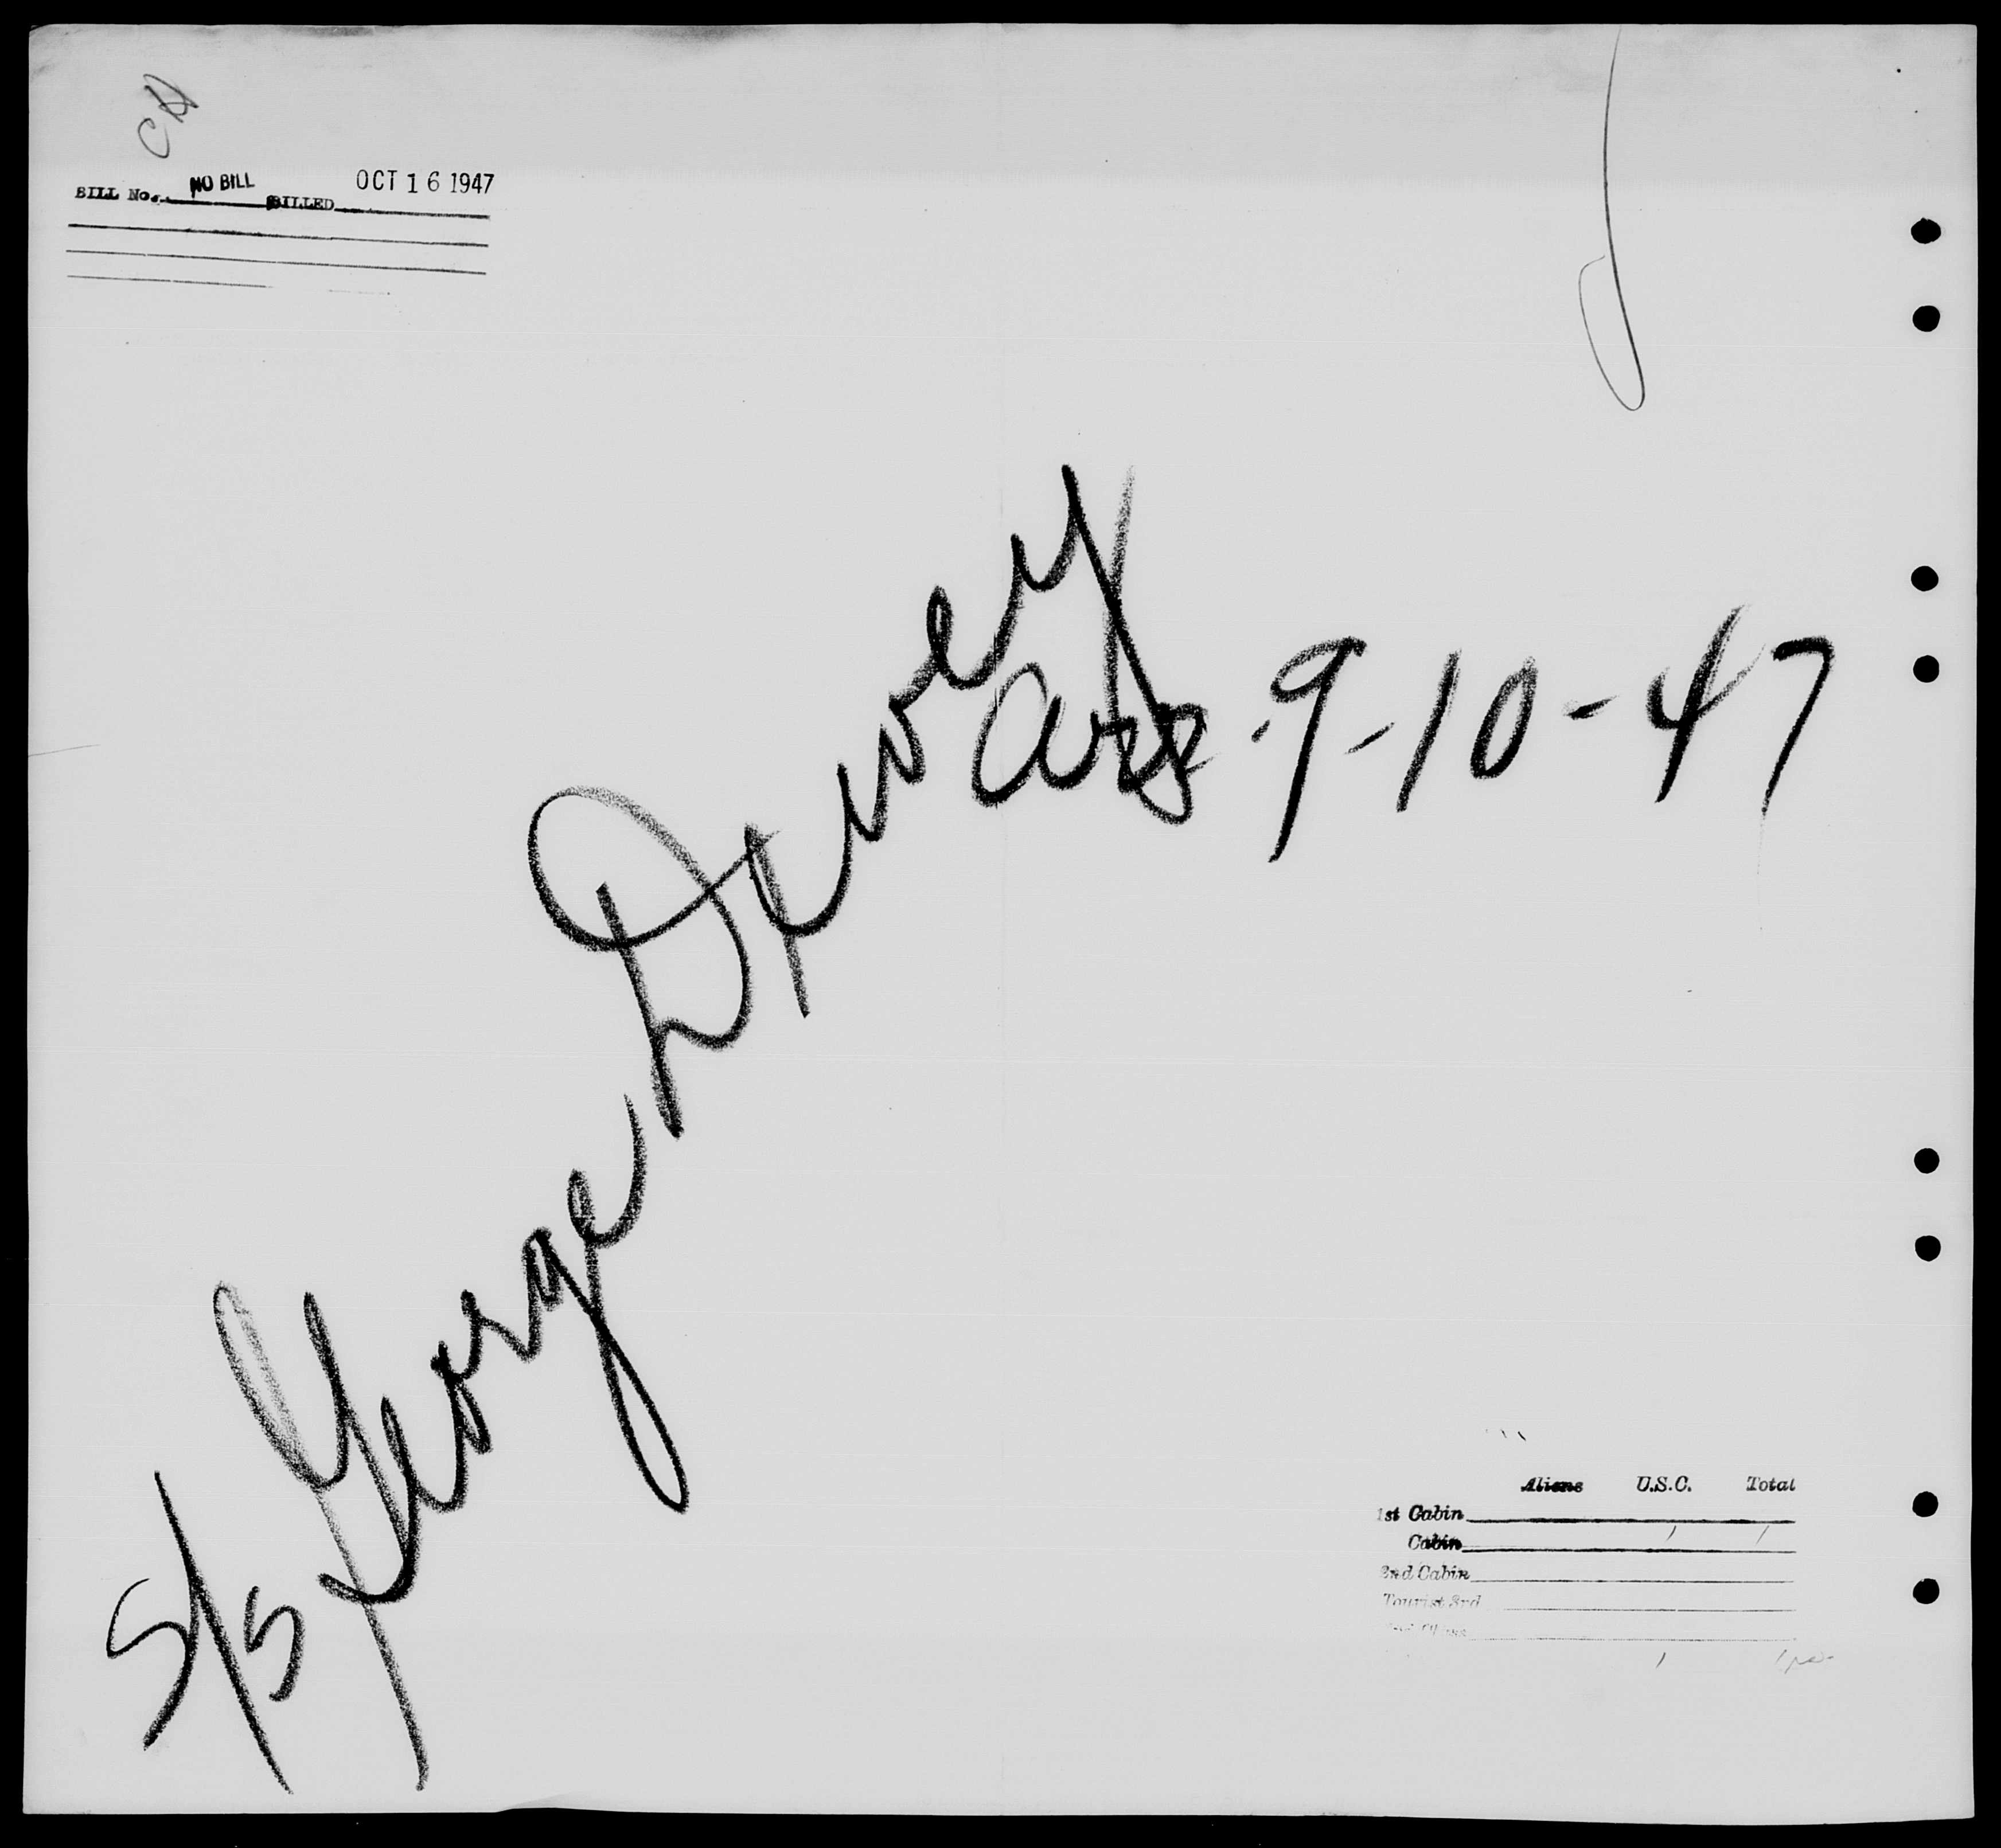 CH
BILL No. NO BILL BILLED OCT 16 1947
S/S George Dewey
Arr. 9-10-47
Aliens U.S.C. Total
1st Cabin
Cabin 1 1
2nd Cabin
Tourist 3rd
1 1